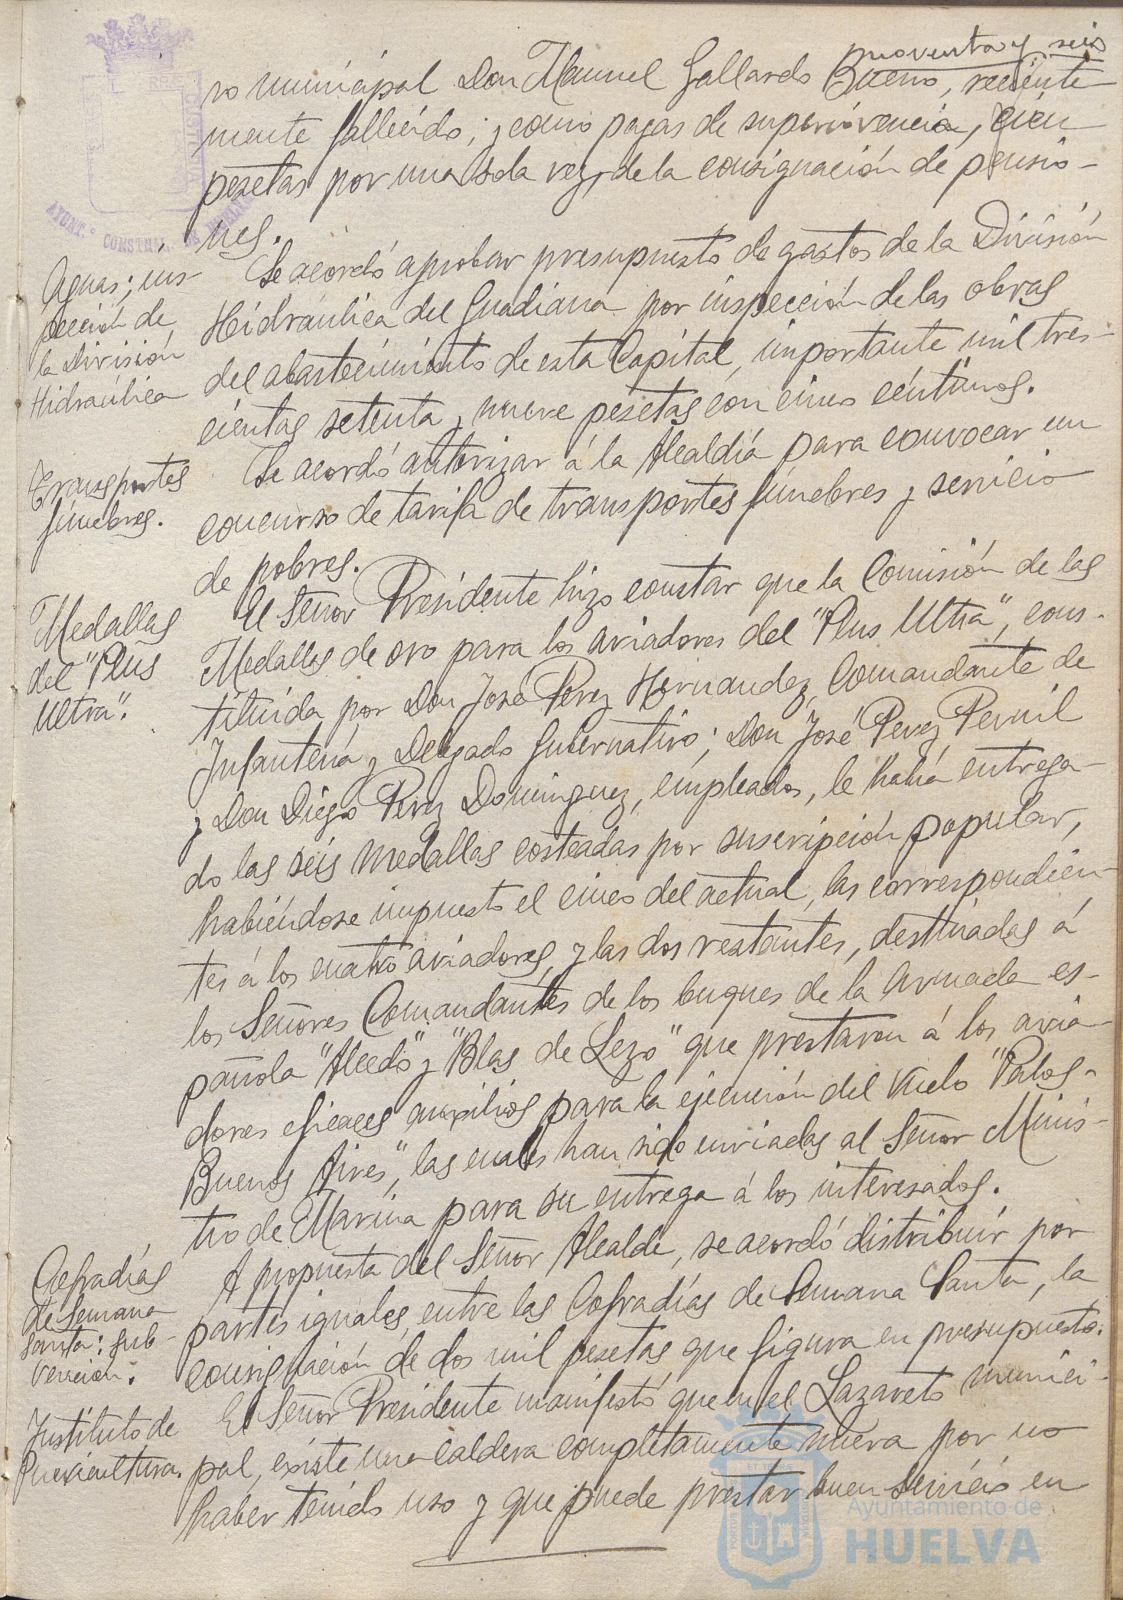 noventa y seis
ro municipal Don Manuel Gallardo Bueno, reciente-
mente fallecido; y como pagas de supervivencia, cien
pesetas por una sola vez, de la consignación de pensio-
nes.
AYUNT.º CONSTNAL. DE HUELVA
Aguas; ins-
pección de
la División
Hidráulica
Se acordó aprobar presupuesto de gastos de la División
Hidráulica del Guadiana por inspección de las obras
del abastecimiento de esta Capital, importante mil tres-
cientas setenta y nueve pesetas con cinco céntimos.
Transportes
fúnebres.
Se acordó autorizar á la Alcaldía para convocar un
concurso de tarifa de transportes fúnebres y servicio
de pobres.
Medallas
del "Plus
Ultra".
El Señor Presidente hizo constar que la Comisión de las
Medallas de oro para los aviadores del "Plus Ultra", cons-
tituida por Don José Perez Hernandez, Comandante de
Infantería y Delegado Gubernativo; Don José Perez Pernil
y Don Diego Perez Dominguez, empleados, le había entrega-
do las seis medallas costeadas por suscripción popular,
habiéndose impuesto el cinco del actual, las correspondien-
tes á los cuatro aviadores, y las dos restantes, destinadas á
los Señores Comandantes de los buques de la Armada es-
pañola "Alcedo" y "Blas de Lezo" que prestaron á los avia-
dores eficaces auxilios para la ejecución del vuelo "Palos-
Buenos Aires", las cuales han sido enviadas al Señor Minis-
tro de Marina para su entrega á los interesados.
Cofradías
de Semana
Santa: sub-
vención.
A propuesta del Señor Alcalde, se acordó distribuir por
partes iguales, entre las Cofradías de Semana Santa, la
consignación de dos mil pesetas que figura en presupuesto.
Instituto de
Puericultura.
El Señor Presidente manifestó que en el Lazareto munici-
pal, existe una caldera completamente nueva por no
haber tenido uso y que puede prestar buen servicio en
Ayuntamiento de
HUELVA